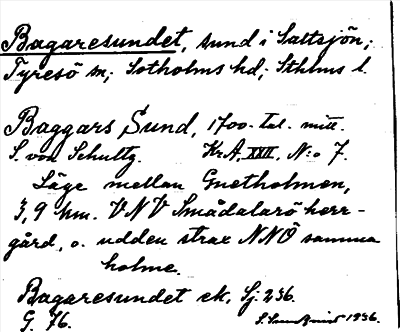 Bagaresundet, sund i Saltsjön,
Tyresö sn; Sotholms hd; Sthlms l.
Baggars Sund, 1700-tal. mitt.
S. von Schultz. Kr A, XXII, N:o 7.
Läge mellan Gnetholmen,
3,9 km. VNV Smådalarö herr-
gård, o. udden strax NNÖ samma
holme.
Bagaresundet ek. Sj. 236.
G. 76. 1936.